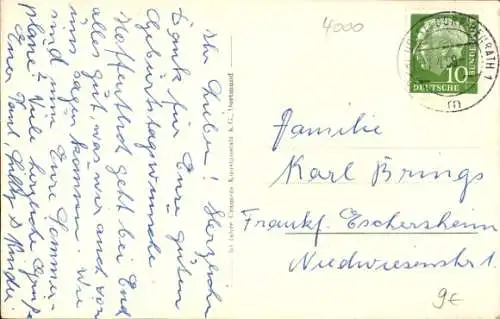 Ihr Lieben! Herzlichen
Dank für Eure guten
Geburtstagswünsche.
Hoffentlich geht bei Euch
alles gut, was wir auch von
uns sagen können. Wie
sind nun Eure Sommer-
pläne? Viele herzliche Grüße
Euer Paul, Lilly & Kinder
50 Jahre Cramers Kunstanstalt K.G., Dortmund
4000
10
DEUTSCHE
BUNDESPOST
Familie
Karl Brings
Frankf. Eschersheim
Niedwiesenstr 1
9€